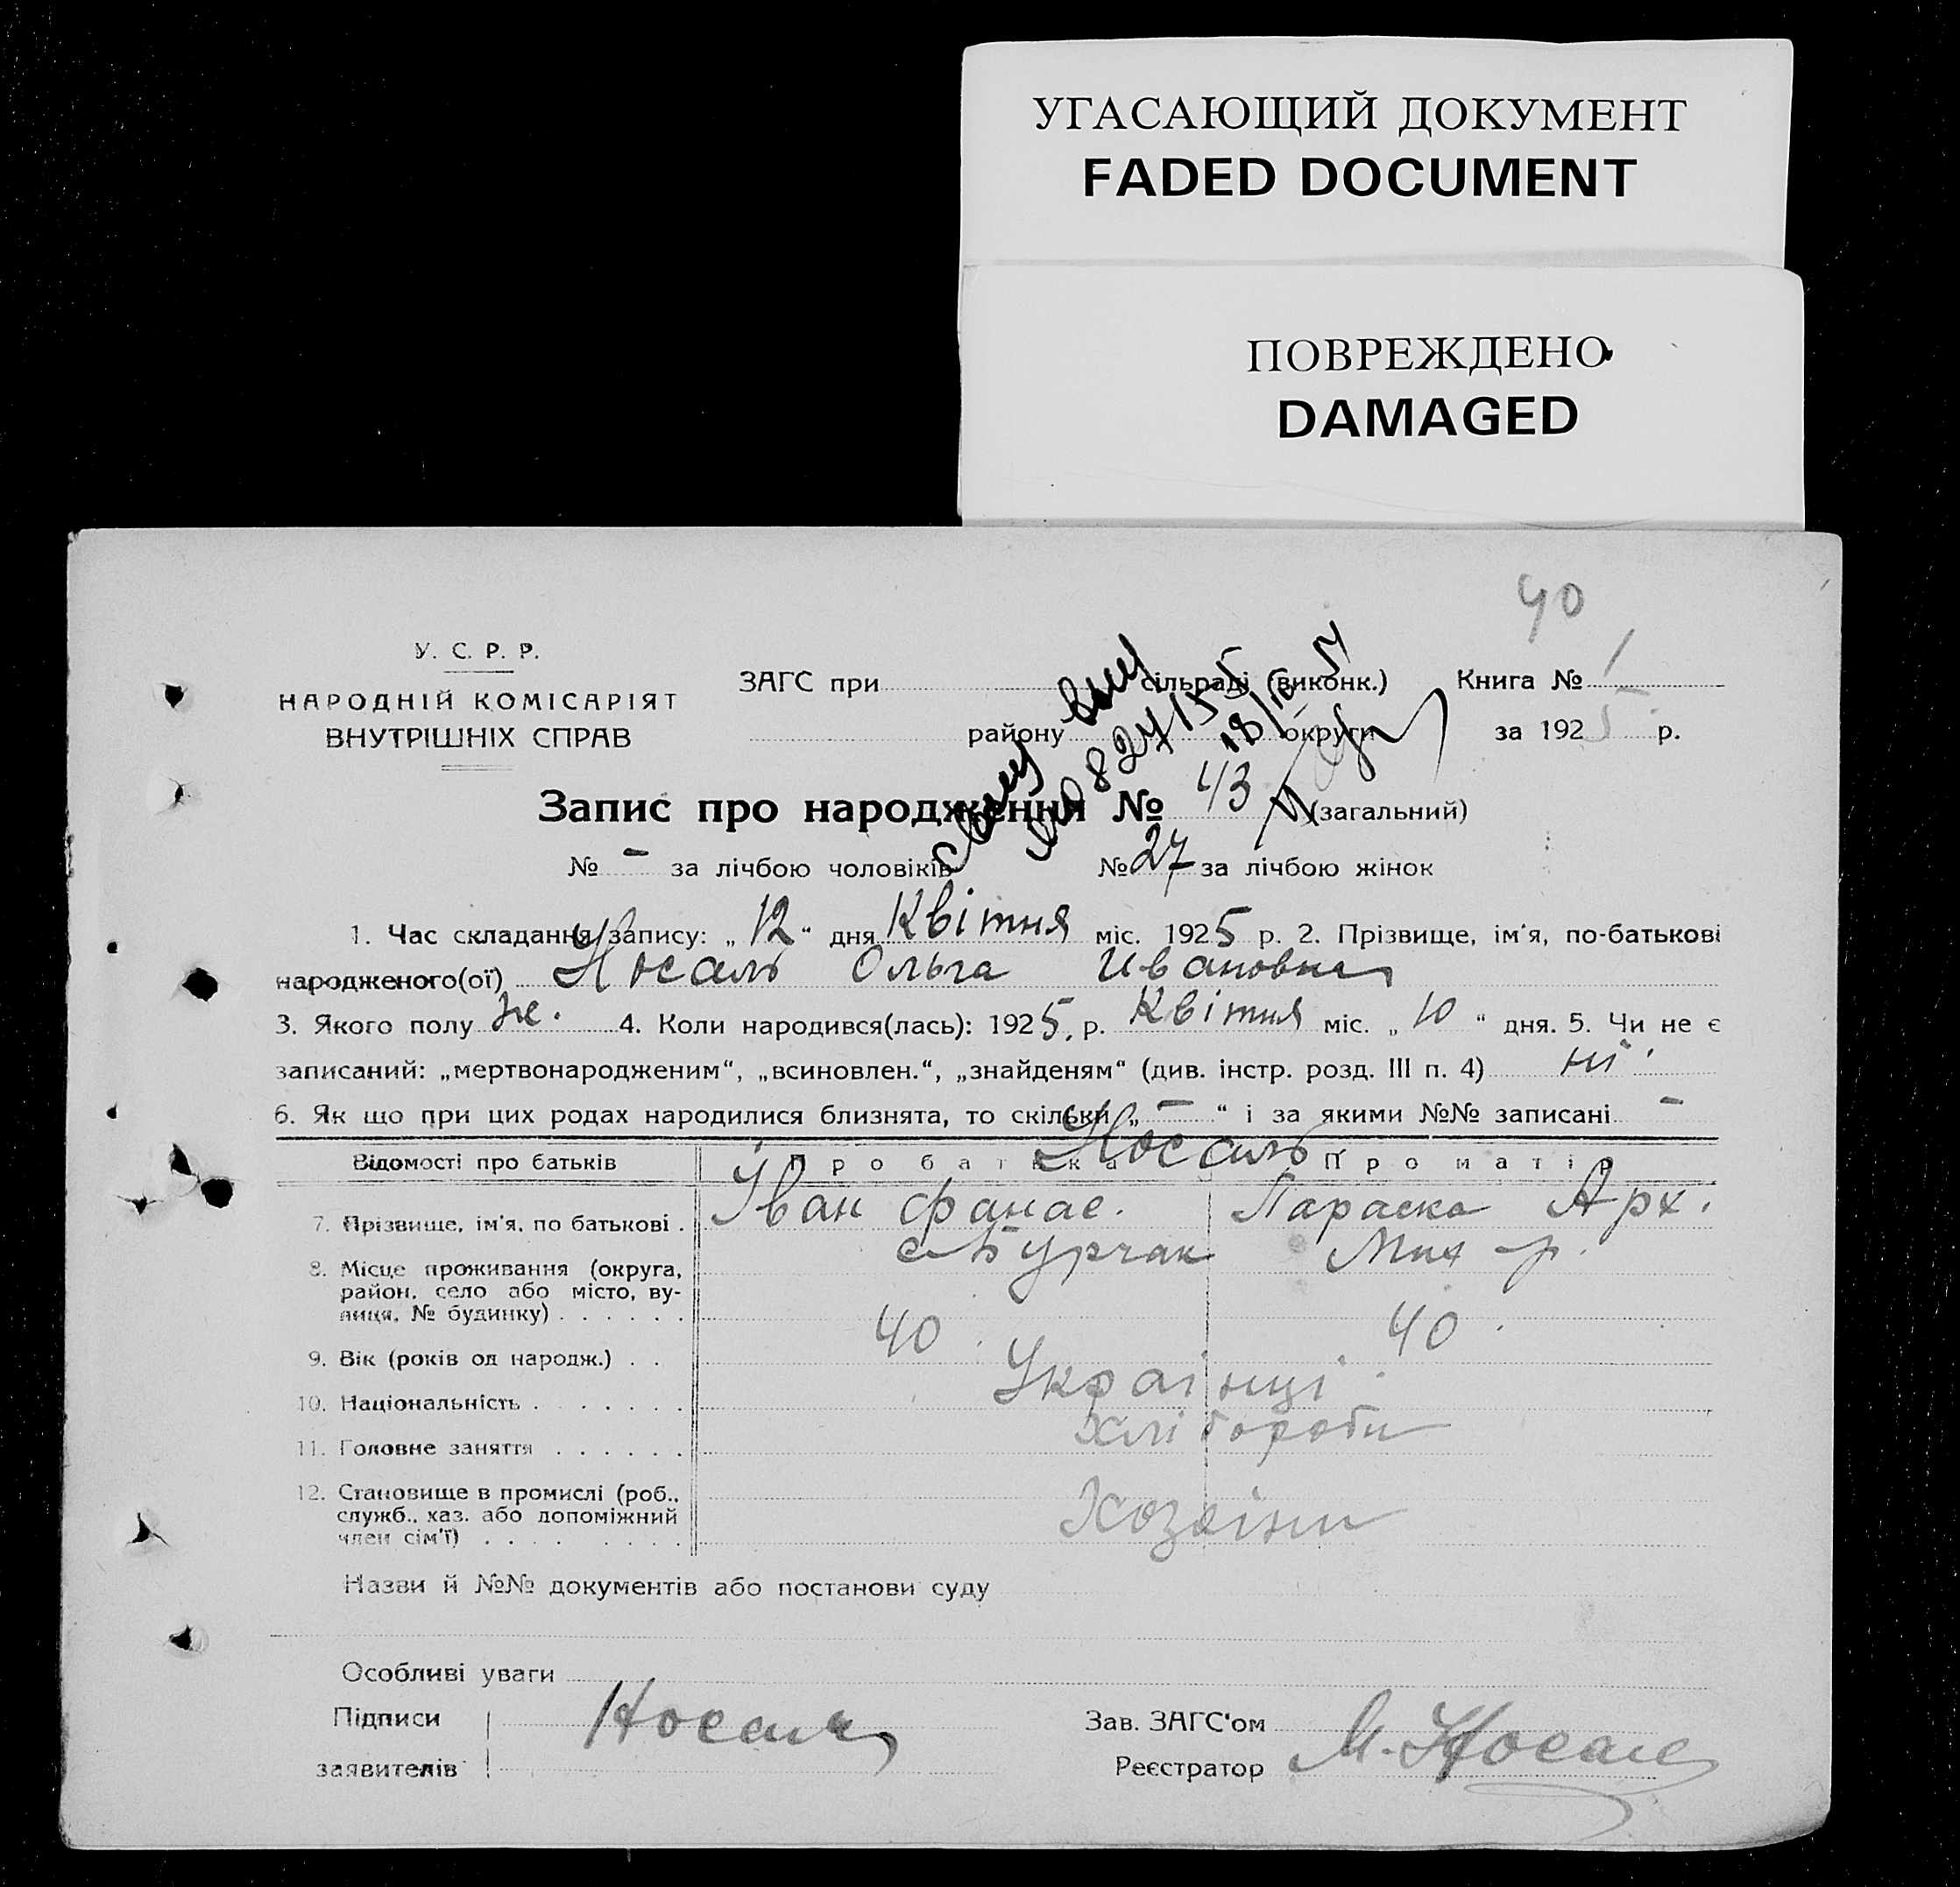 УГАСАЮЩИЙ ДОКУМЕНТ
FADED DOCUMENT
ПОВРЕЖДЕНО
DAMAGED
40
У. С. Р. Р.
НАРОДНІЙ КОМІСАРІЯТ
ВНУТРІШНІХ СПРАВ
ЗАГС при сільраді (виконк.)
району округи
Книга № 1
за 1925 р.
18/10 51
Запис про народження № 43 (загальний)
№ – за лічбою чоловіків № 27 за лічбою жінок
1. Час складання запису: „12“ дня Квітня міс. 1925 р. 2. Прізвище, ім'я, по-батькові
народженого(ої) Носаль Ольга Ивановна
3. Якого полу же. 4. Коли народився(лась): 1925. р. Квітня міс. „10“ дня. 5. Чи не є
записаний: „мертвонародженим“, „всиновлен.“, „знайденям“ (див. інстр. розд. III п. 4) ні.
6. Як що при цих родах народилися близнята, то скільки „–“ і за якими №№ записані –
Відомості про батьків Про батька Про матір
Носаль
7. Прізвище, ім'я, по батькові . Іван Фанас. Параска Арх.
8. Місце проживання (округа, с. Бурчак Мих р.
район, село або місто, ву-
лиця, № будинку) . . . . . .
9. Вік (років од народж.) . . 40. 40.
10. Національність . . . . . . . Українці.
11. Головне заняття . . . . . . Хлібороби
12. Становище в промислі (роб.,
служб., хаз. або допоміжний Хозяіни
член сім'ї) . . . . . . . .
Назви й №№ документів або постанови суду
Особливі уваги
Підписи Носаль Зав. ЗАГС'ом
заявителів Реєстратор М. Носаль